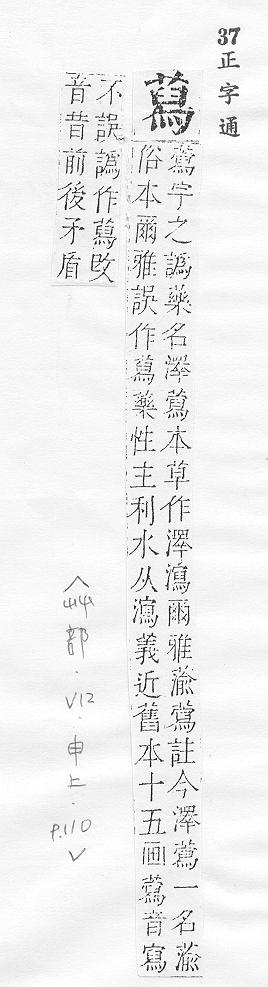 37正字通
蕮
蕮字之譌藥名澤蕮本草作澤瀉爾雅蕍蕮註今澤蕮一名蕍
俗本爾雅誤作蕮藥性主利水从瀉義近舊本十五画蕮音寫
不誤譌作蕮改
音昔前後矛盾
艸部．V12．申上．P.110